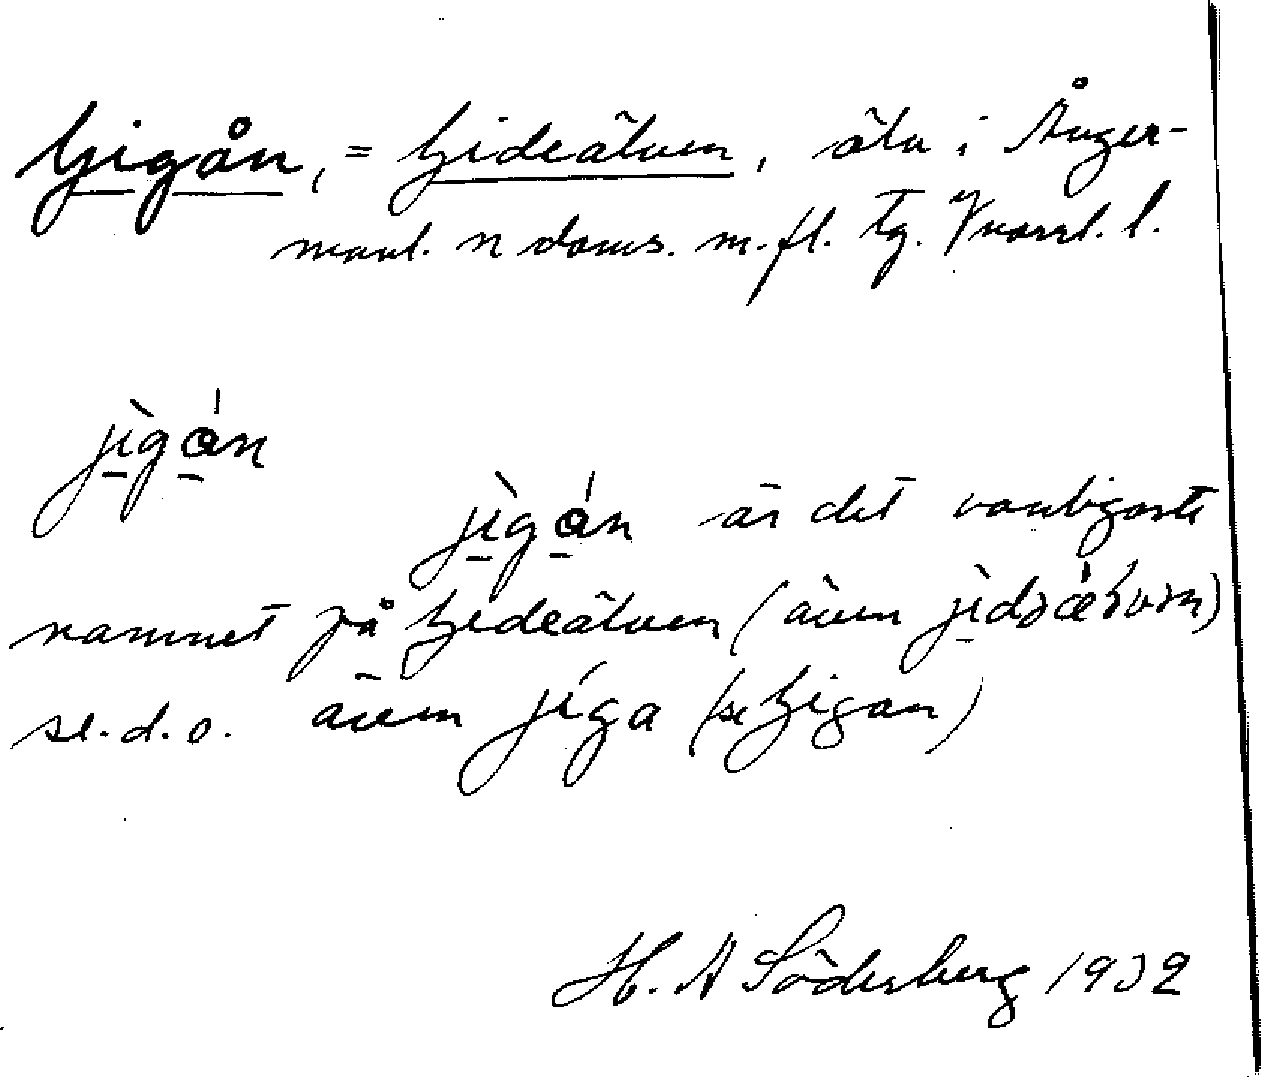 Gigån, = Gideälven, älv i Ånger-
manl. n doms. m.fl. Tg. Vnorrl. l.
jìgån
jìgån är det vanligaste
namnet på Gideälven (även
se. d. o. även jíga (se Gigan)
H. A Söderberg 1932